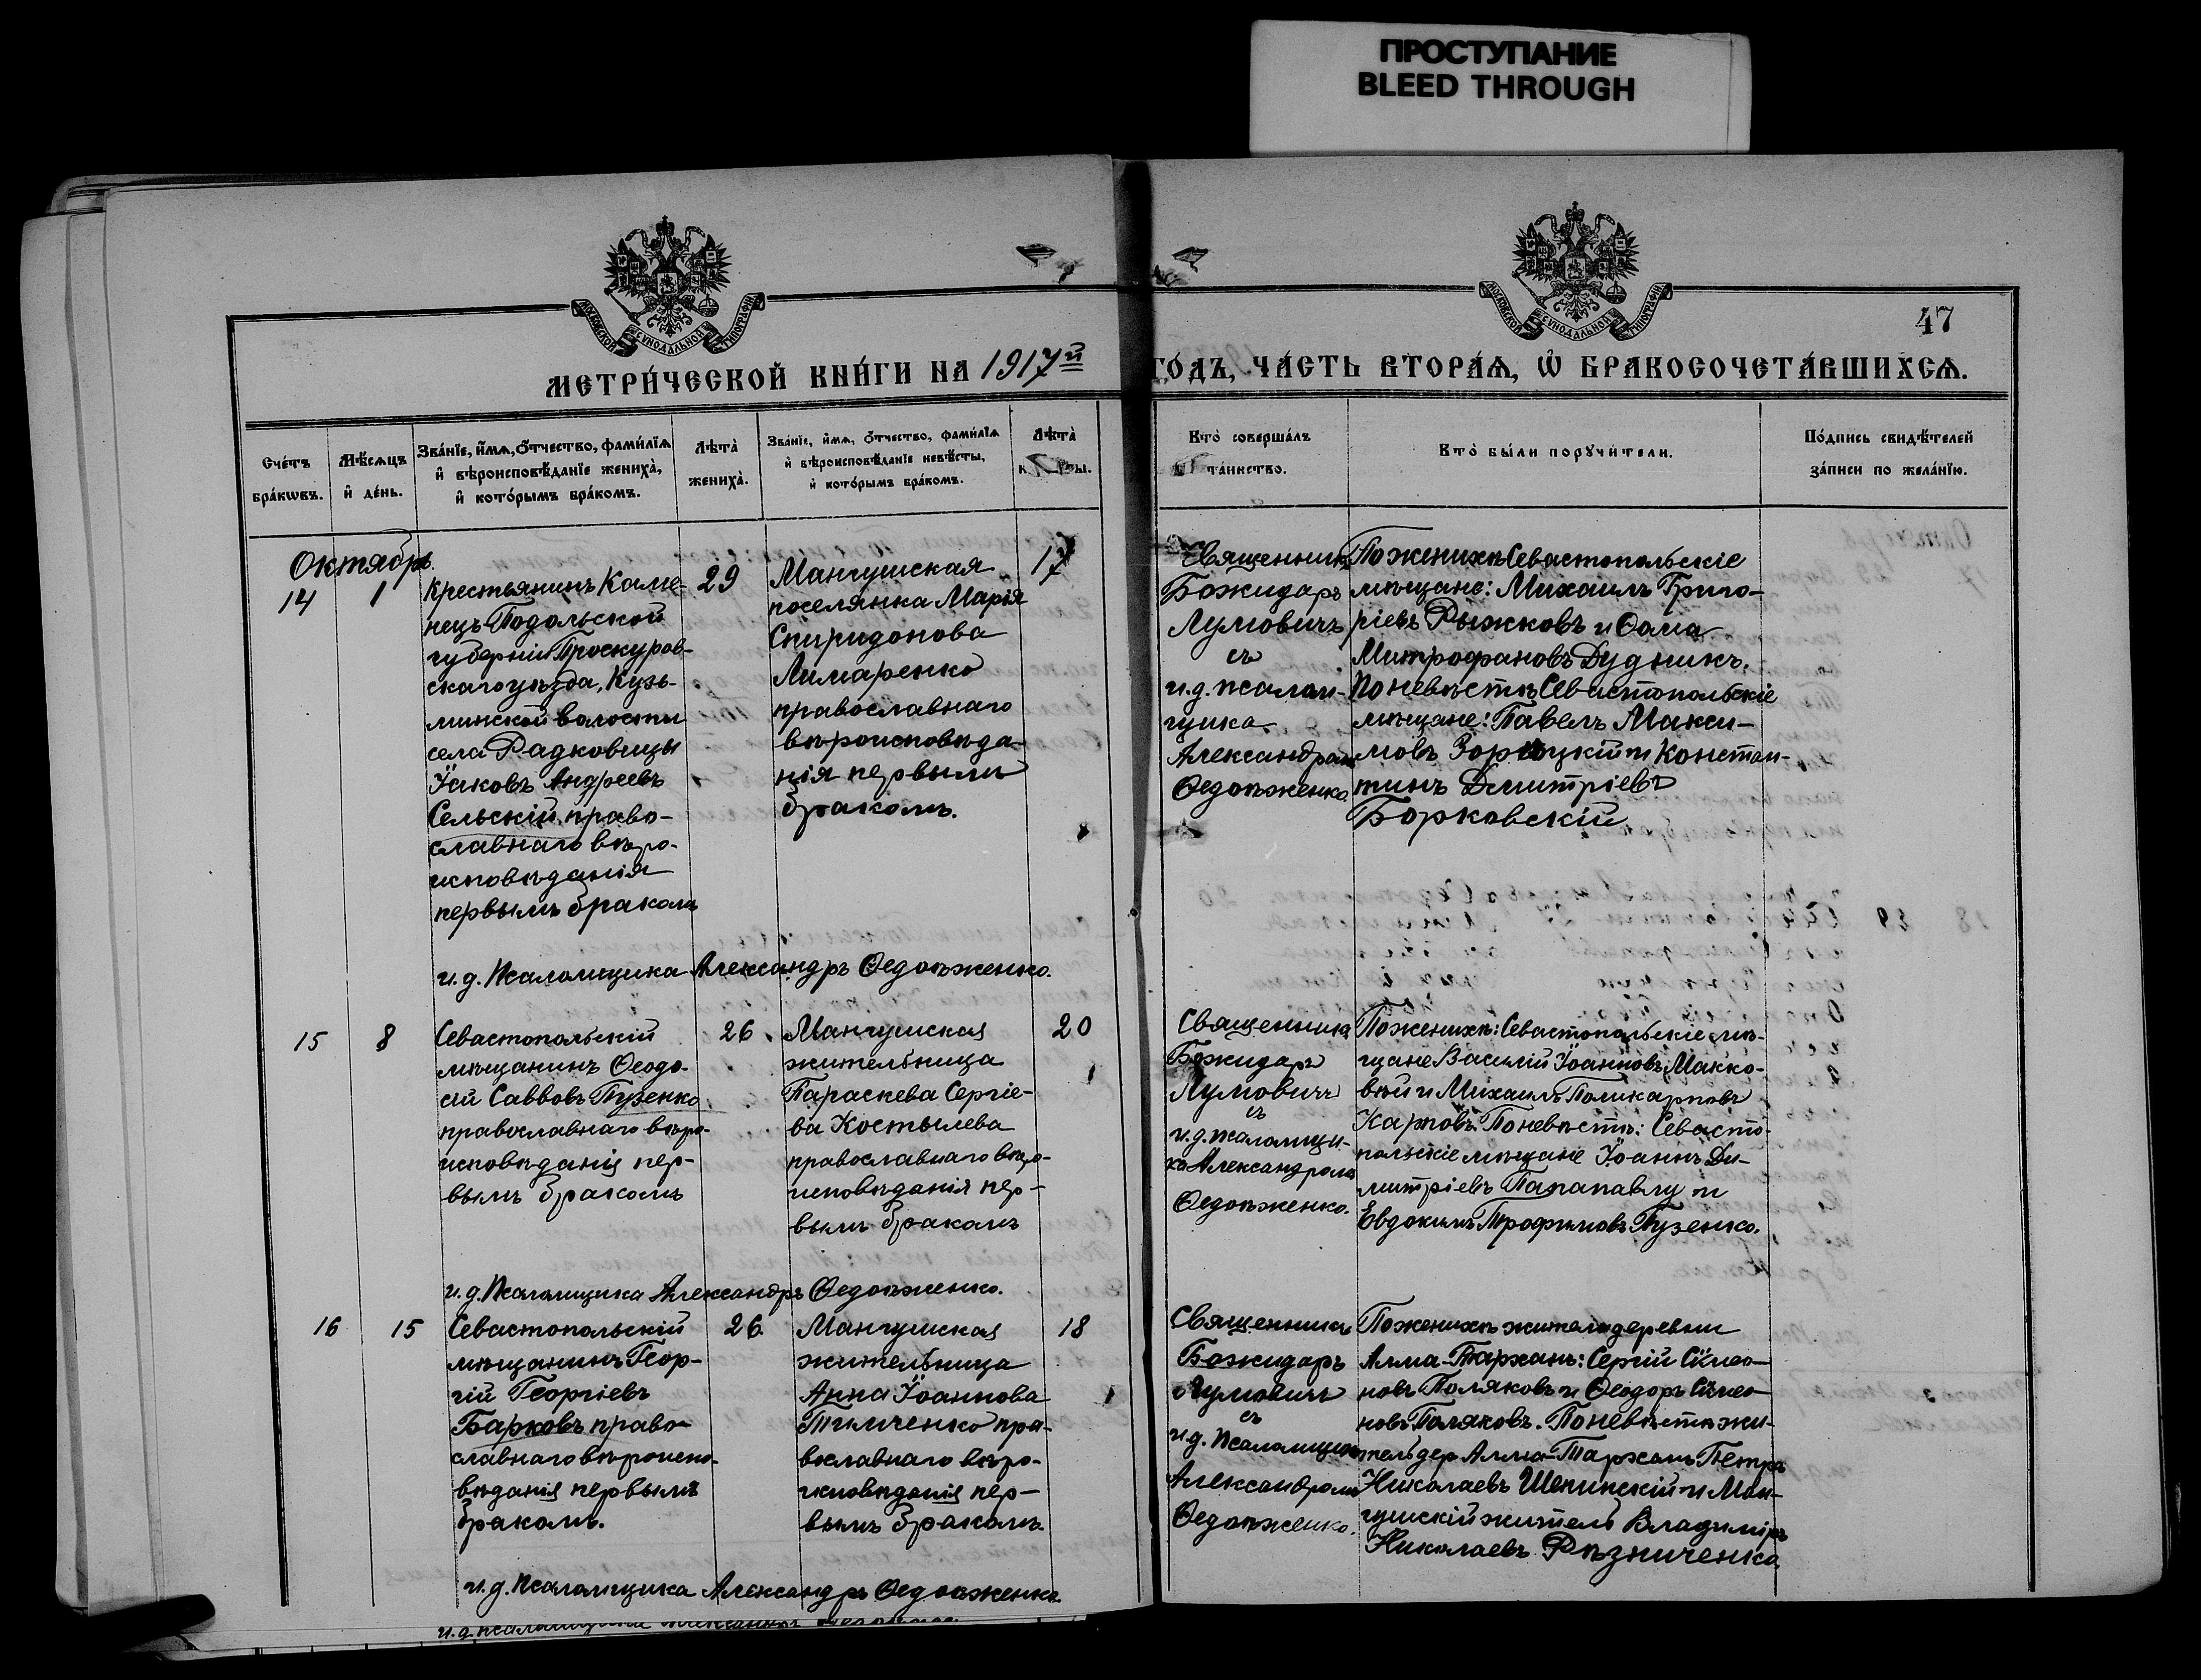 ПРОСТУПАНИЕ
BLEED THROUGH
МОСКОВСКОЙ СѴНОДАЛЬНОЙ ТИПОГРАФІИ
МОСКОВСКОЙ СѴНОДАЛЬНОЙ ТИПОГРАФІИ
47
МЕТРИ́ЧЕСКОЙ КНИ́ГИ НА 1917й
ГО́ДЪ, ЧА́СТЬ ВТОРА́Ѧ, Ѽ БРАКОСОЧЕТА́ВШИХСѦ.
Сче́тъ
бра́кѡвъ.
Мѣ́сѧцъ
и҆ де́нь.
Зва́нїе, и҆́мѧ, ѻ҆́тчество, фами́лїѧ
и҆ вѣроисповѣ́данїе жениха̀,
и҆ кото́рымъ бра́комъ.
Лѣ́та
жениха̀.
Зва́нїе, и҆́мѧ, ѻ҆́тчество, фами́лїѧ
и҆ вѣроисповѣ́данїе невѣ́сты,
и҆ кото́рымъ бра́комъ.
Лѣ́та
Кто̀ соверша́лъ
та́инство.
Кто̀ бы́ли порꙋчи́тели.
По́дпись свидѣ́телей
за́писи по жела́нїю.
Октябрь
14
1
Крестьянинъ Каме-
нецъ Подольской
губерніи Проскуров-
скаго уѣзда, Кузь-
минской волости
села Радковицы
Іаковъ Андреевъ
Сельскій, право-
славнаго вѣро-
исповѣданія
первымъ бракомъ
29
Мангушская
поселянка Марія
Спиридонова
Лимаренко
православнаго
вѣроисповѣда-
нія первымъ
бракомъ.
17
Священникъ
Божидаръ
Лумовичъ
съ
и.д. псалом-
щика
Александромъ
Ѳедоѣженко.
По женихѣ Севастопольскіе
мѣщане: Михаилъ Григо-
ріевъ Рыжковъ и Ѳома
Митрофановъ Дудникъ.
По невѣстѣ Севастопольскіе
мѣщане: Павелъ Макси-
мовъ Зорицкій и Констан-
тинъ Дмитріевъ
Борковскій
и.д. Псаломщика Александръ Ѳедоѣженко.
15
8
Севастопольскій
мѣщанинъ Ѳеодо-
сій Саввовъ Пузенко
православнаго вѣро-
исповѣданія пер-
вымъ бракомъ
26.
Мангушская
жительница
Параскева Сергіе-
ва Костылева
православнаго вѣро-
исповѣданія пер-
вымъ бракомъ
20
Священникъ
Божидаръ
Лумовичъ
съ
и.д. псаломщи-
ка Александромъ
Ѳедоѣженко.
По женихѣ: Севастопольскіе мѣ-
щане Василій Іоанновъ Макко-
вѣй и Михаилъ Поликарповъ
Карповъ. По невѣстѣ: Севасто-
польскіе мѣщане Іоаннъ Ди-
митріевъ Папапавлу и
Евдокимъ Трофимовъ Пузенко.
и.д. Псаломщика Александръ Ѳедоѣженко.
16
15
Севастопольскій
мѣщанинъ Геор-
гій Георгіевъ
Барковъ право-
славнаго вѣроиспо-
вѣданія первымъ
бракомъ.
26.
Мангушская
жительница
Анна Іоаннова
Тимченко пра-
вославнаго вѣро-
исповѣданія пер-
вымъ бракомъ.
18
Священникъ
Божидаръ
Лумовичъ
съ
и.д. Псаломщика
Александромъ
Ѳедоѣженко.
По женихѣ жители деревни
Алма-Тарханъ: Сергій Сѵмео-
новъ Поляковъ и Ѳеодоръ Сѵмео-
новъ Поляковъ. По невѣстѣ жи-
тель дер Алма-Тарханъ Петръ
Николаевъ Шепинскій и Ман-
гушскій житель Владиміръ
Николаевъ Рѣзниченко
и.д. Псаломщика Александръ Ѳедоѣженко
и.д. псаломщика